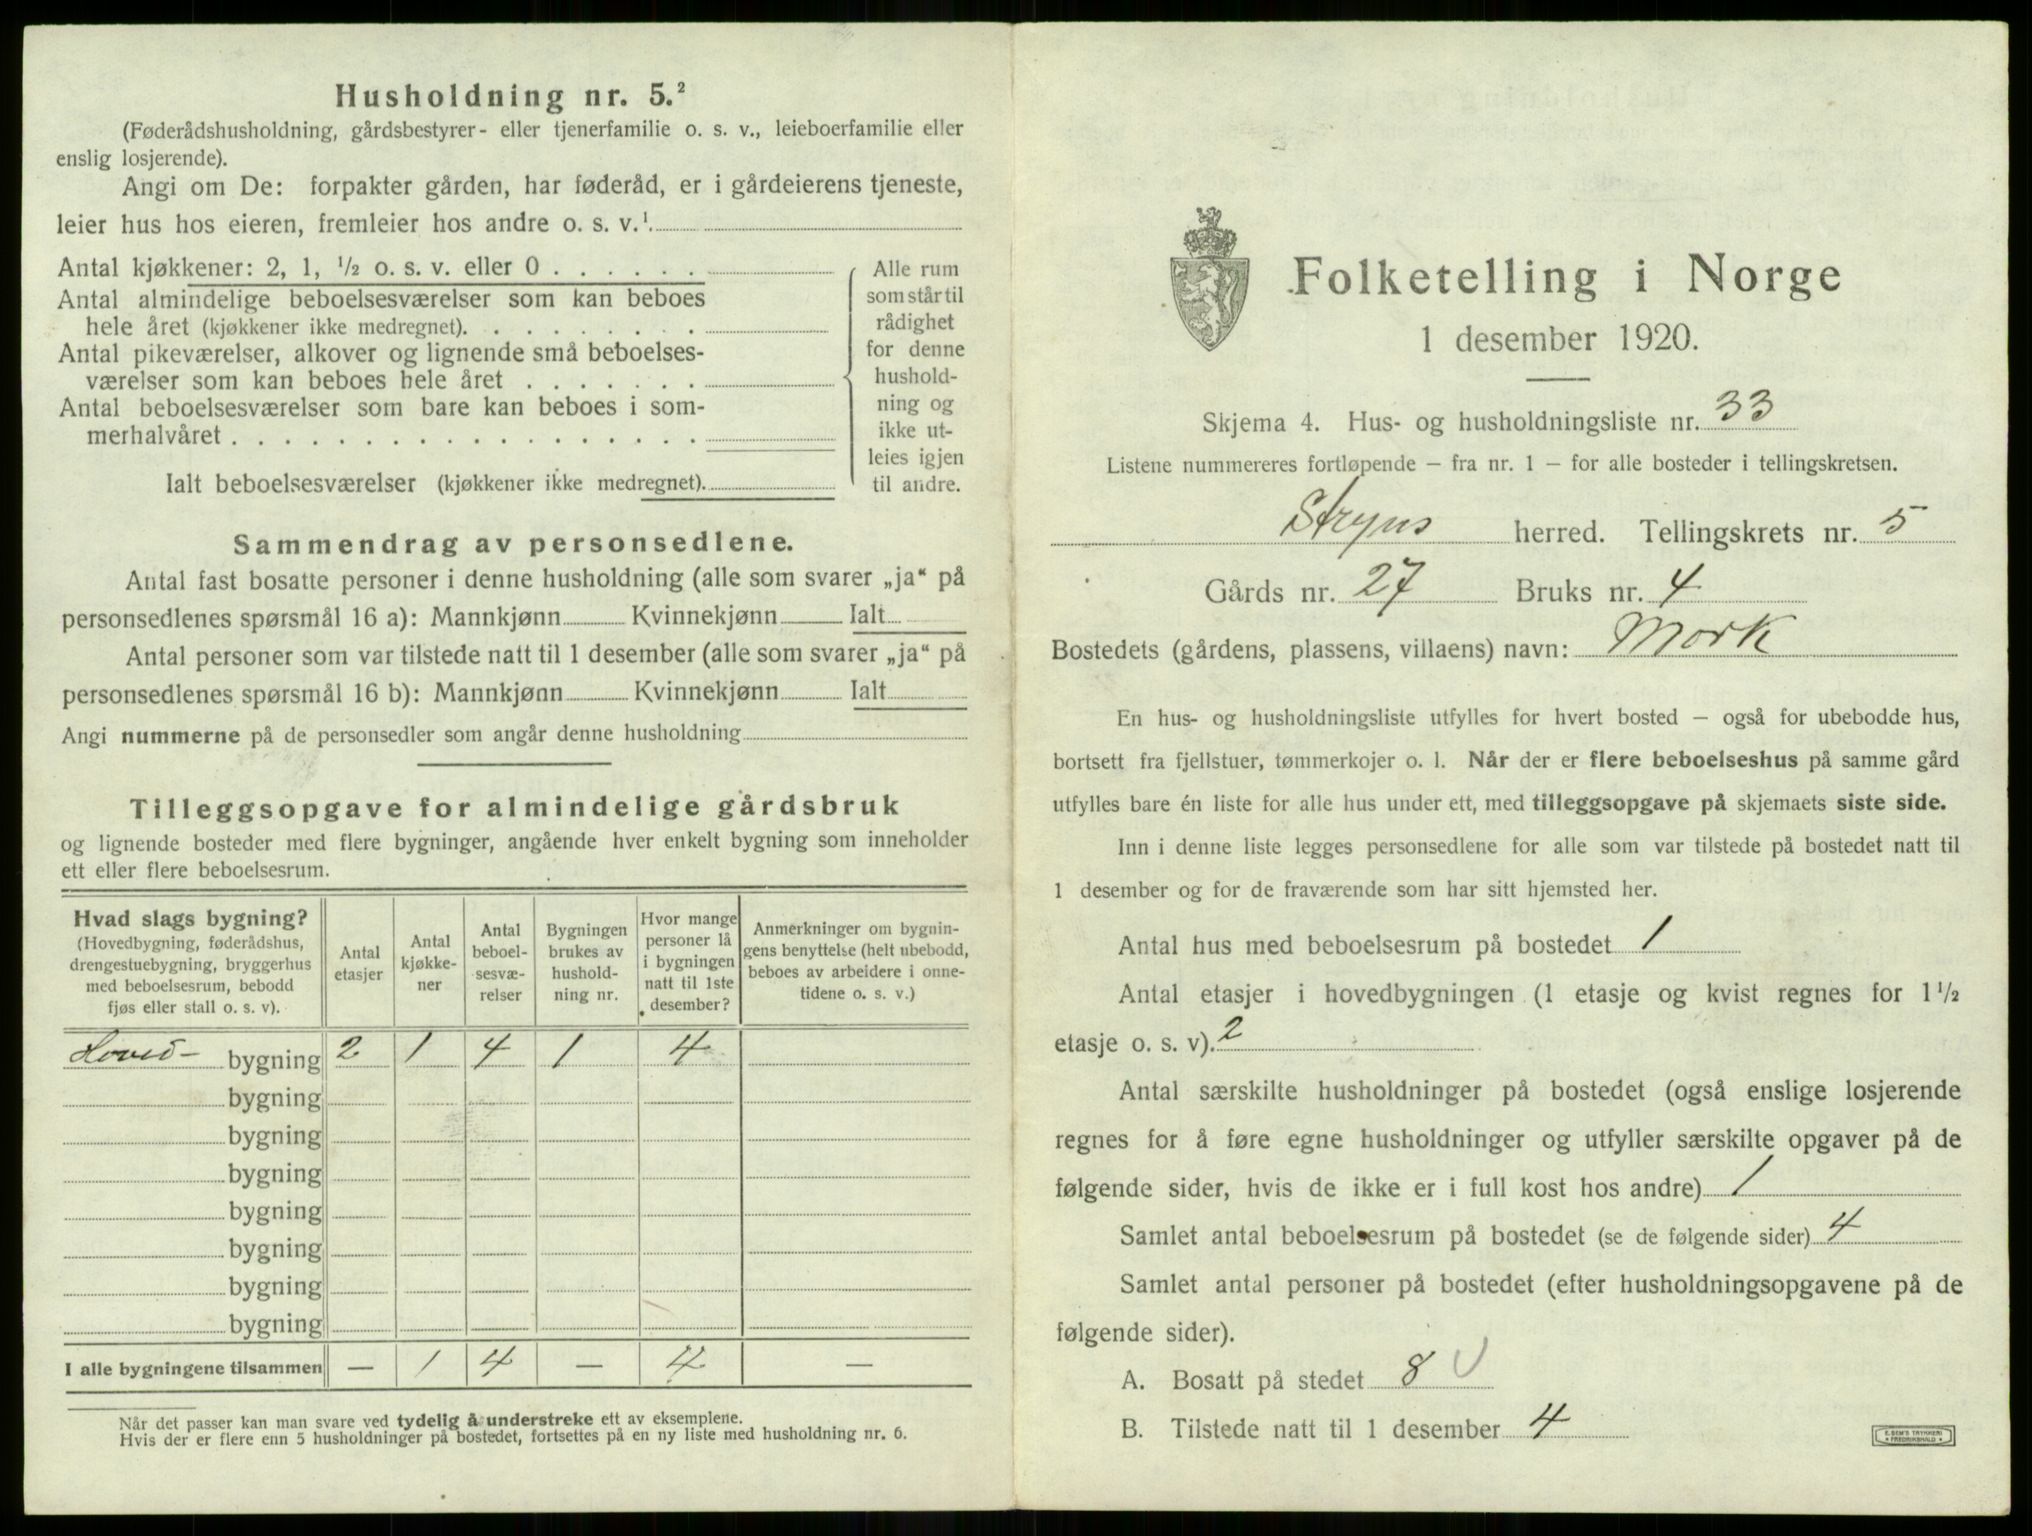 Husholdning nr. 5.²
(Føderådshusholdning, gårdsbestyrer- eller tjenerfamilie o. s. v., leieboerfamilie eller
enslig losjerende).
Angi om De: forpakter gården, har føderåd, er i gårdeierens tjeneste,
leier hus hos eieren, fremleier hos andre o. s. v.¹
Antal kjøkkener: 2, 1, ½ o. s. v. eller 0 . . . . . .
Antal almindelige beboelsesværelser som kan beboes
hele året (kjøkkener ikke medregnet). . . . . . . . .
Antal pikeværelser, alkover og lignende små beboelses-
værelser som kan beboes hele året . . . . . . .
Antal beboelsesværelser som bare kan beboes i som-
merhalvåret . . . . . . . . . . . . . . . . . .
Ialt beboelsesværelser (kjøkkener ikke medregnet).
Alle rum
som står til
rådighet
for denne
hushold-
ning og
ikke ut-
leies igjen
til andre.
Sammendrag av personsedlene.
Antal fast bosatte personer i denne husholdning (alle som svarer „ja“ på
personsedlenes spørsmål 16 a): Mannkjønn Kvinnekjønn Ialt
Antal personer som var tilstede natt til 1 desember (alle som svarer „ja“ på
personsedlenes spørsmål 16 b): Mannkjønn Kvinnekjønn Ialt
Angi nummerne på de personsedler som angår denne husholdning
Tilleggsopgave for almindelige gårdsbruk
og lignende bosteder med flere bygninger, angående hver enkelt bygning som inneholder
ett eller flere beboelsesrum.
Hvad slags bygning?
(Hovedbygning, føderådshus,
drengestuebygning, bryggerhus
med beboelsesrum, bebodd
fjøs eller stall o. s. v).
Antal
etasjer
Antal
kjøkke-
ner
Antal
beboel-
sesvæ-
relser
Bygningen
brukes av
hushold-
ning nr.
Hvor mange
personer lå
i bygningen
natt til 1ste
desember?
Anmerkninger om bygnin-
gens benyttelse (helt ubebodd,
beboes av arbeidere i onne-
tidene o. s. v.)
Hoved- bygning 2 1 4 1 4
bygning
bygning
bygning
bygning
bygning
bygning
bygning
I alle bygningene tilsammen — 1 4 — 4 —
Når det passer kan man svare ved tydelig å understreke ett av eksemplene.
Hvis der er flere enn 5 husholdninger på bostedet, fortsettes på en ny liste med husholdning nr. 6.
Folketelling i Norge
1 desember 1920.
Skjema 4. Hus- og husholdningsliste nr. 33
Listene nummereres fortløpende — fra nr. 1 — for alle bosteder i tellingskretsen.
Stryns herred. Tellingskrets nr. 5
Gårds nr. 27 Bruks nr. 4
Bostedets (gårdens, plassens, villaens) navn: Mork
En hus- og husholdningsliste utfylles for hvert bosted — også for ubebodde hus,
bortsett fra fjellstuer, tømmerkojer o. l. Når der er flere beboelseshus på samme gård
utfylles bare én liste for alle hus under ett, med tilleggsopgave på skjemaets siste side.
Inn i denne liste legges personsedlene for alle som var tilstede på bostedet natt til
1 desember og for de fraværende som har sitt hjemsted her.
Antal hus med beboelsesrum på bostedet 1
Antal etasjer i hovedbygningen (1 etasje og kvist regnes for 1½
etasje o. s. v). 2
Antal særskilte husholdninger på bostedet (også enslige losjerende
regnes for å føre egne husholdninger og utfyller særskilte opgaver på de
følgende sider, hvis de ikke er i full kost hos andre) 1
Samlet antal beboelsesrum på bostedet (se de følgende sider) 4
Samlet antal personer på bostedet (efter husholdningsopgavene på de
følgende sider).
A. Bosatt på stedet 8
B. Tilstede natt til 1 desember 4
E. SEM'S TRYKKERI
FREDRIKSHALD